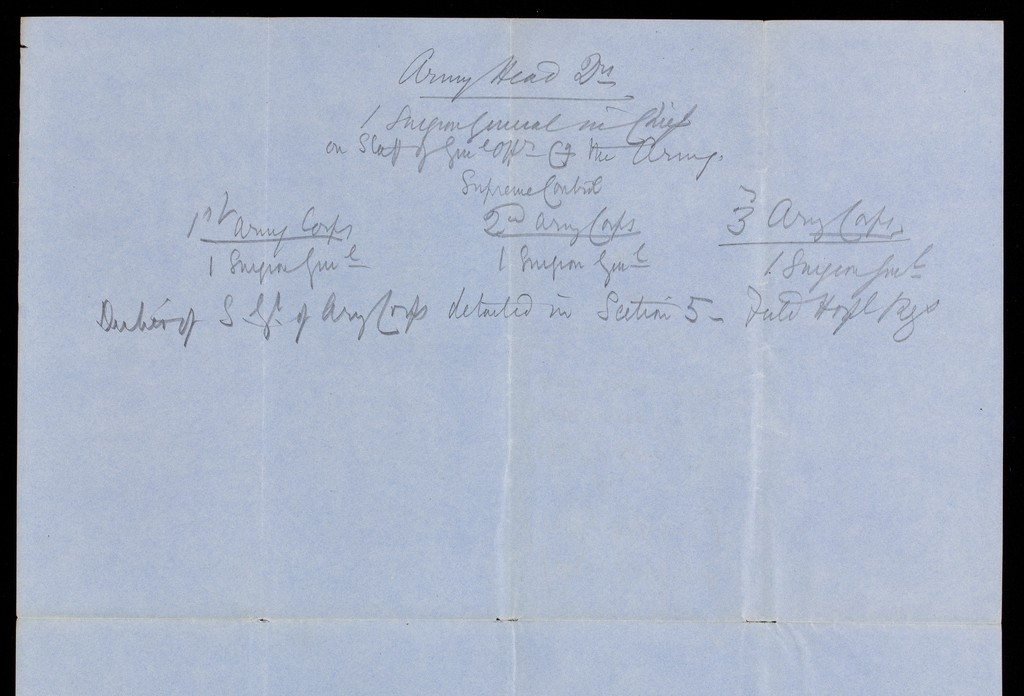 Army Head Qrs
1 Surgeon General in Chief
on Staff of Genl Offr Cg the Army.
Supreme Control
1st Army Corps 2nd Army Corps 3 Army Corps
1 Surgeon Genl 1 Surgeon Genl 1 Surgeon Genl
Duties of S. Gl. of Army Corps detailed in Section 5 - Field Hospl Regs